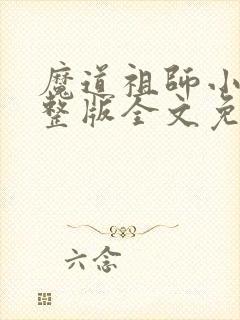 魔道祖师小
整版全文免
六念